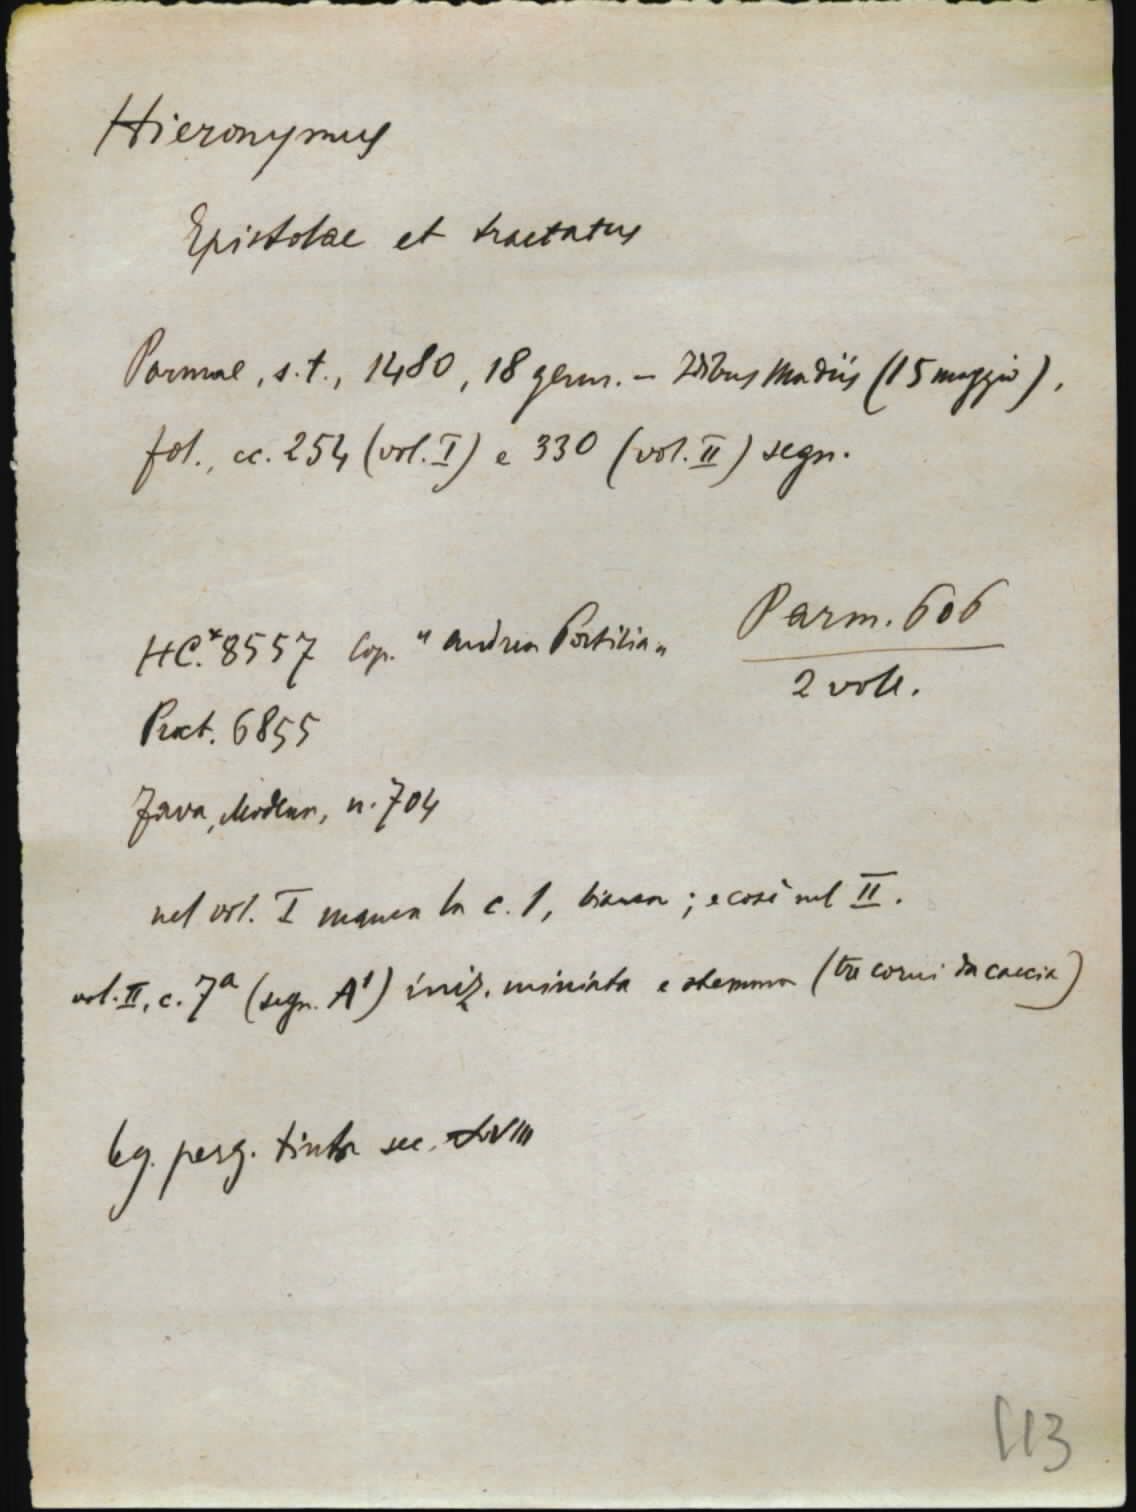 Hieronymus
Epistolae et tractatus
Parmae, s.t., 1480, 18 genn. - Idibus Madiis (15 maggio),
fol., cc. 254 (vol. I) e 330 (vol. II) segn.
Parm. 606
2 voll.
HC.*8557 Cop. "Andrea Portilia"
Proct. 6855
Fava, Modena, n. 704
nel vol. I manca la c. 1, bianca; e così nel II.
vol. II, c. 7a (segn. A1) iniz. miniata e stemma (tre corni da caccia)
leg. perg. tinta sec. XVIII
113